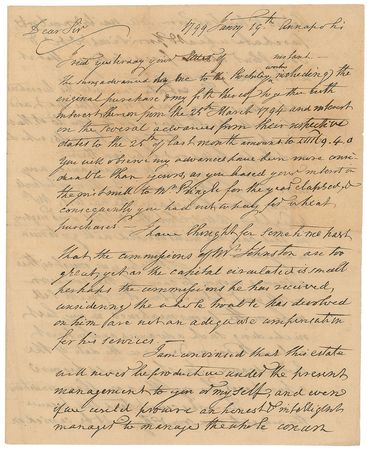 1799 Janry 19th Annapolis
Dear Sir
I recd yesterday your of instant.
The sums advanced by me to the works including the
original purchase my fifth thereof by the with
interest thereon from the 25th March 1794 and interest
on the several advances from their respective
dates to the 25th of last month amount to 9.4.0
You will observe my advances have been more consi-
derable than yours, as you leased your interest in
the mill to Mr Pringle for the year elapsed, &
consequently you had not to pay for wheat
purchases.
I have thought for some time past
that the commissions of Mr. Johnston are too
great, yet as the capital circulated is small
perhaps the commissions he has received,
considering the whole trouble has devolved
on him are not an adequate compensation
for his services
I am convinced that this estate
will never be productive under the present
management to you or myself, and even
if we could procure an honest & intelligent
manager to manage the whole concern